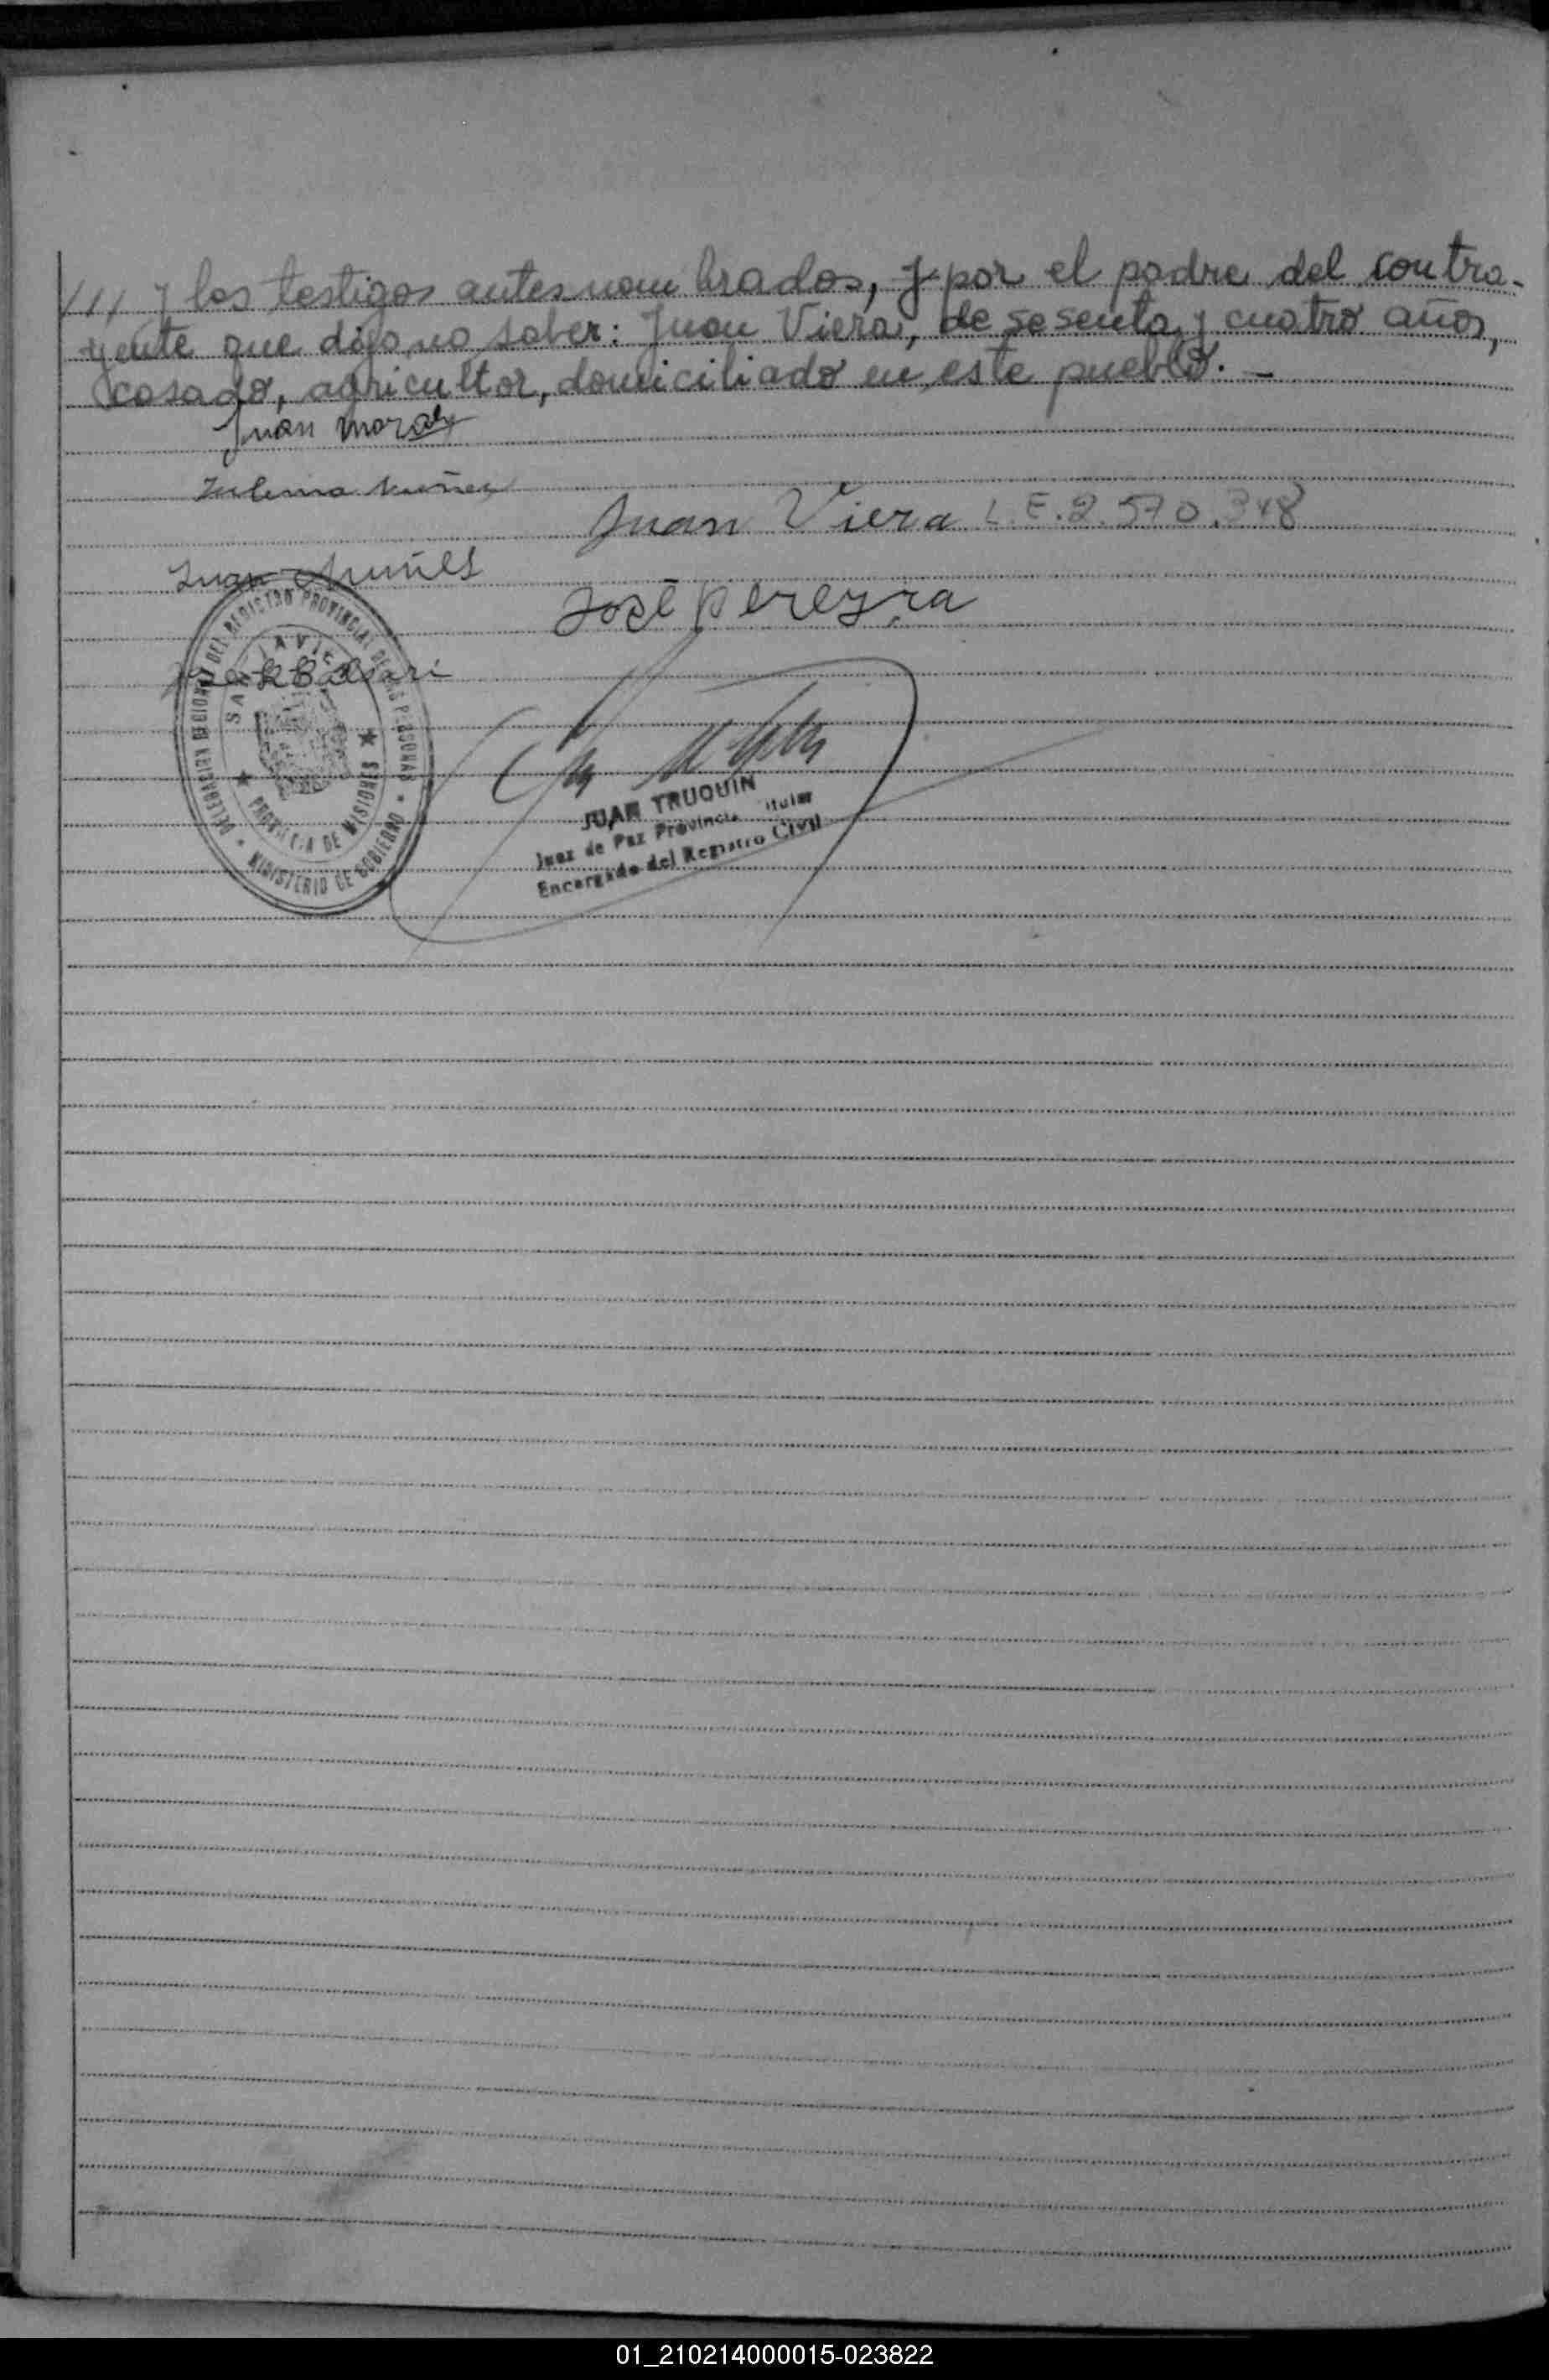 /// y los testigos antesnombrados, y por el padre del contra-
yente que dijo no saber: Juan Viera, de sesenta y cuatro años,
casado, agricultor, domiciliado en este pueblo. -
Juan Morales
Zulema Nuñez
Juan Viera L.E. 2.570.348
Juan Nuñes
José Pereyra
DELEGACION REGIONAL DEL REGISTRO PROVINCIAL DE LAS PERSONAS
SAN JAVIER
PROVINCIA DE MISIONES
MINISTERIO DE GOBIERNO
JUAN TRUQUIN
Juez de Paz Provincial Titular
Encargado del Registro Civil
01_210214000015-023822